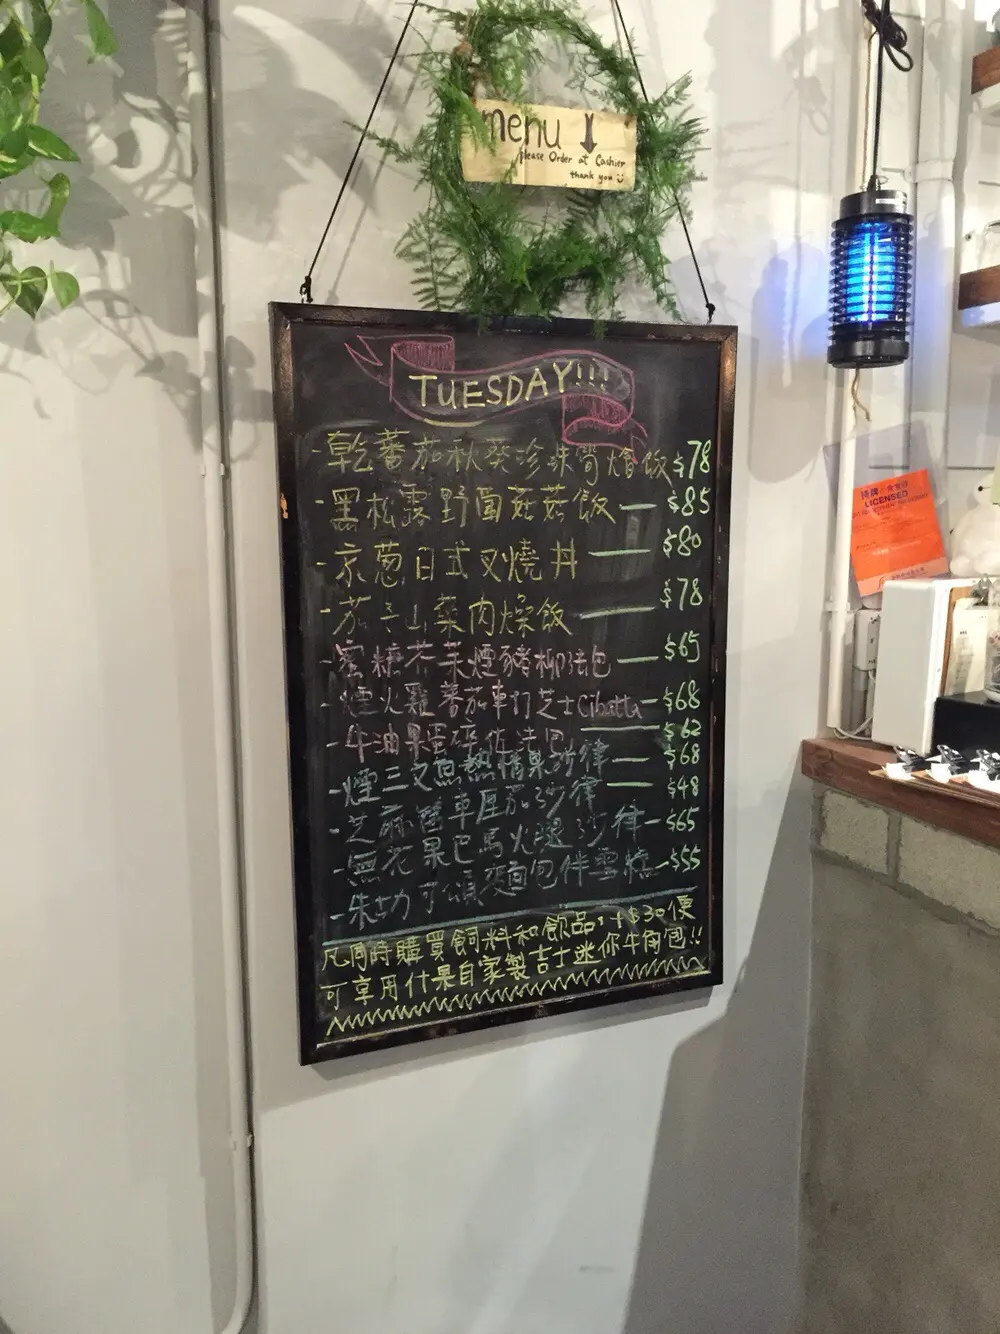 menu ↓
please Order at Cashier
thank you
TUESDAY!!!
-乾蕃茄秋葵珍珠筒燴飯 $78
-黑松露野菌菇菇飯 — $85
-京葱日式叉燒丼 — $80
-茄子山菜肉燥飯 — $78
-蜜糖芥茉煙豬柳法包 — $65
-煙火雞蕃茄車打芝士Cibatta — $68
-牛油果蛋碎佐法包 — $62
-煙三文魚熱情果沙律 — $68
-芝麻醬車厘茄沙律 — $48
-無花果巴馬火腿沙律 - $65
-朱古力可頌麵包伴雪糕 - $55
凡同時購買飼料和飲品,+$30便
可享用什果自家製吉士迷你牛角包!!
LICENSED